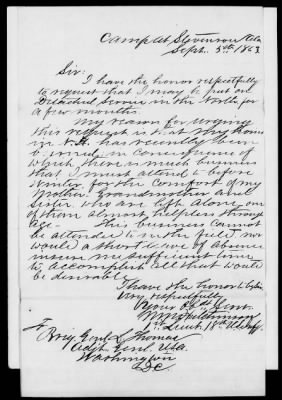 Camp at Stevenson Ala
Sept. 5th 1863
Sir.
I have the honor respectfully
to request that I may be put on
Detached Service in the North for
a few months.
My reason for urging
this request is that My home
in N.H. has recently been
burned, in consequence of
which there is much business
that I must attend to before
Winter for the comfort of my
Grandmother and
Sister, who are left alone, one
of them almost helpless through
Age. This business cannot
be attended to in the field nor
would a short leave of absence
insure me sufficient time
to accomplish all that would
be desirable
I have the honor to be
Very respectfully
Your Obt Servt
Hutchinson
1st Lieut. 18th U.S. Inf.
To
Brig Genl L Thomas
Adjt Genl U.S.A.
Washington
D.C.